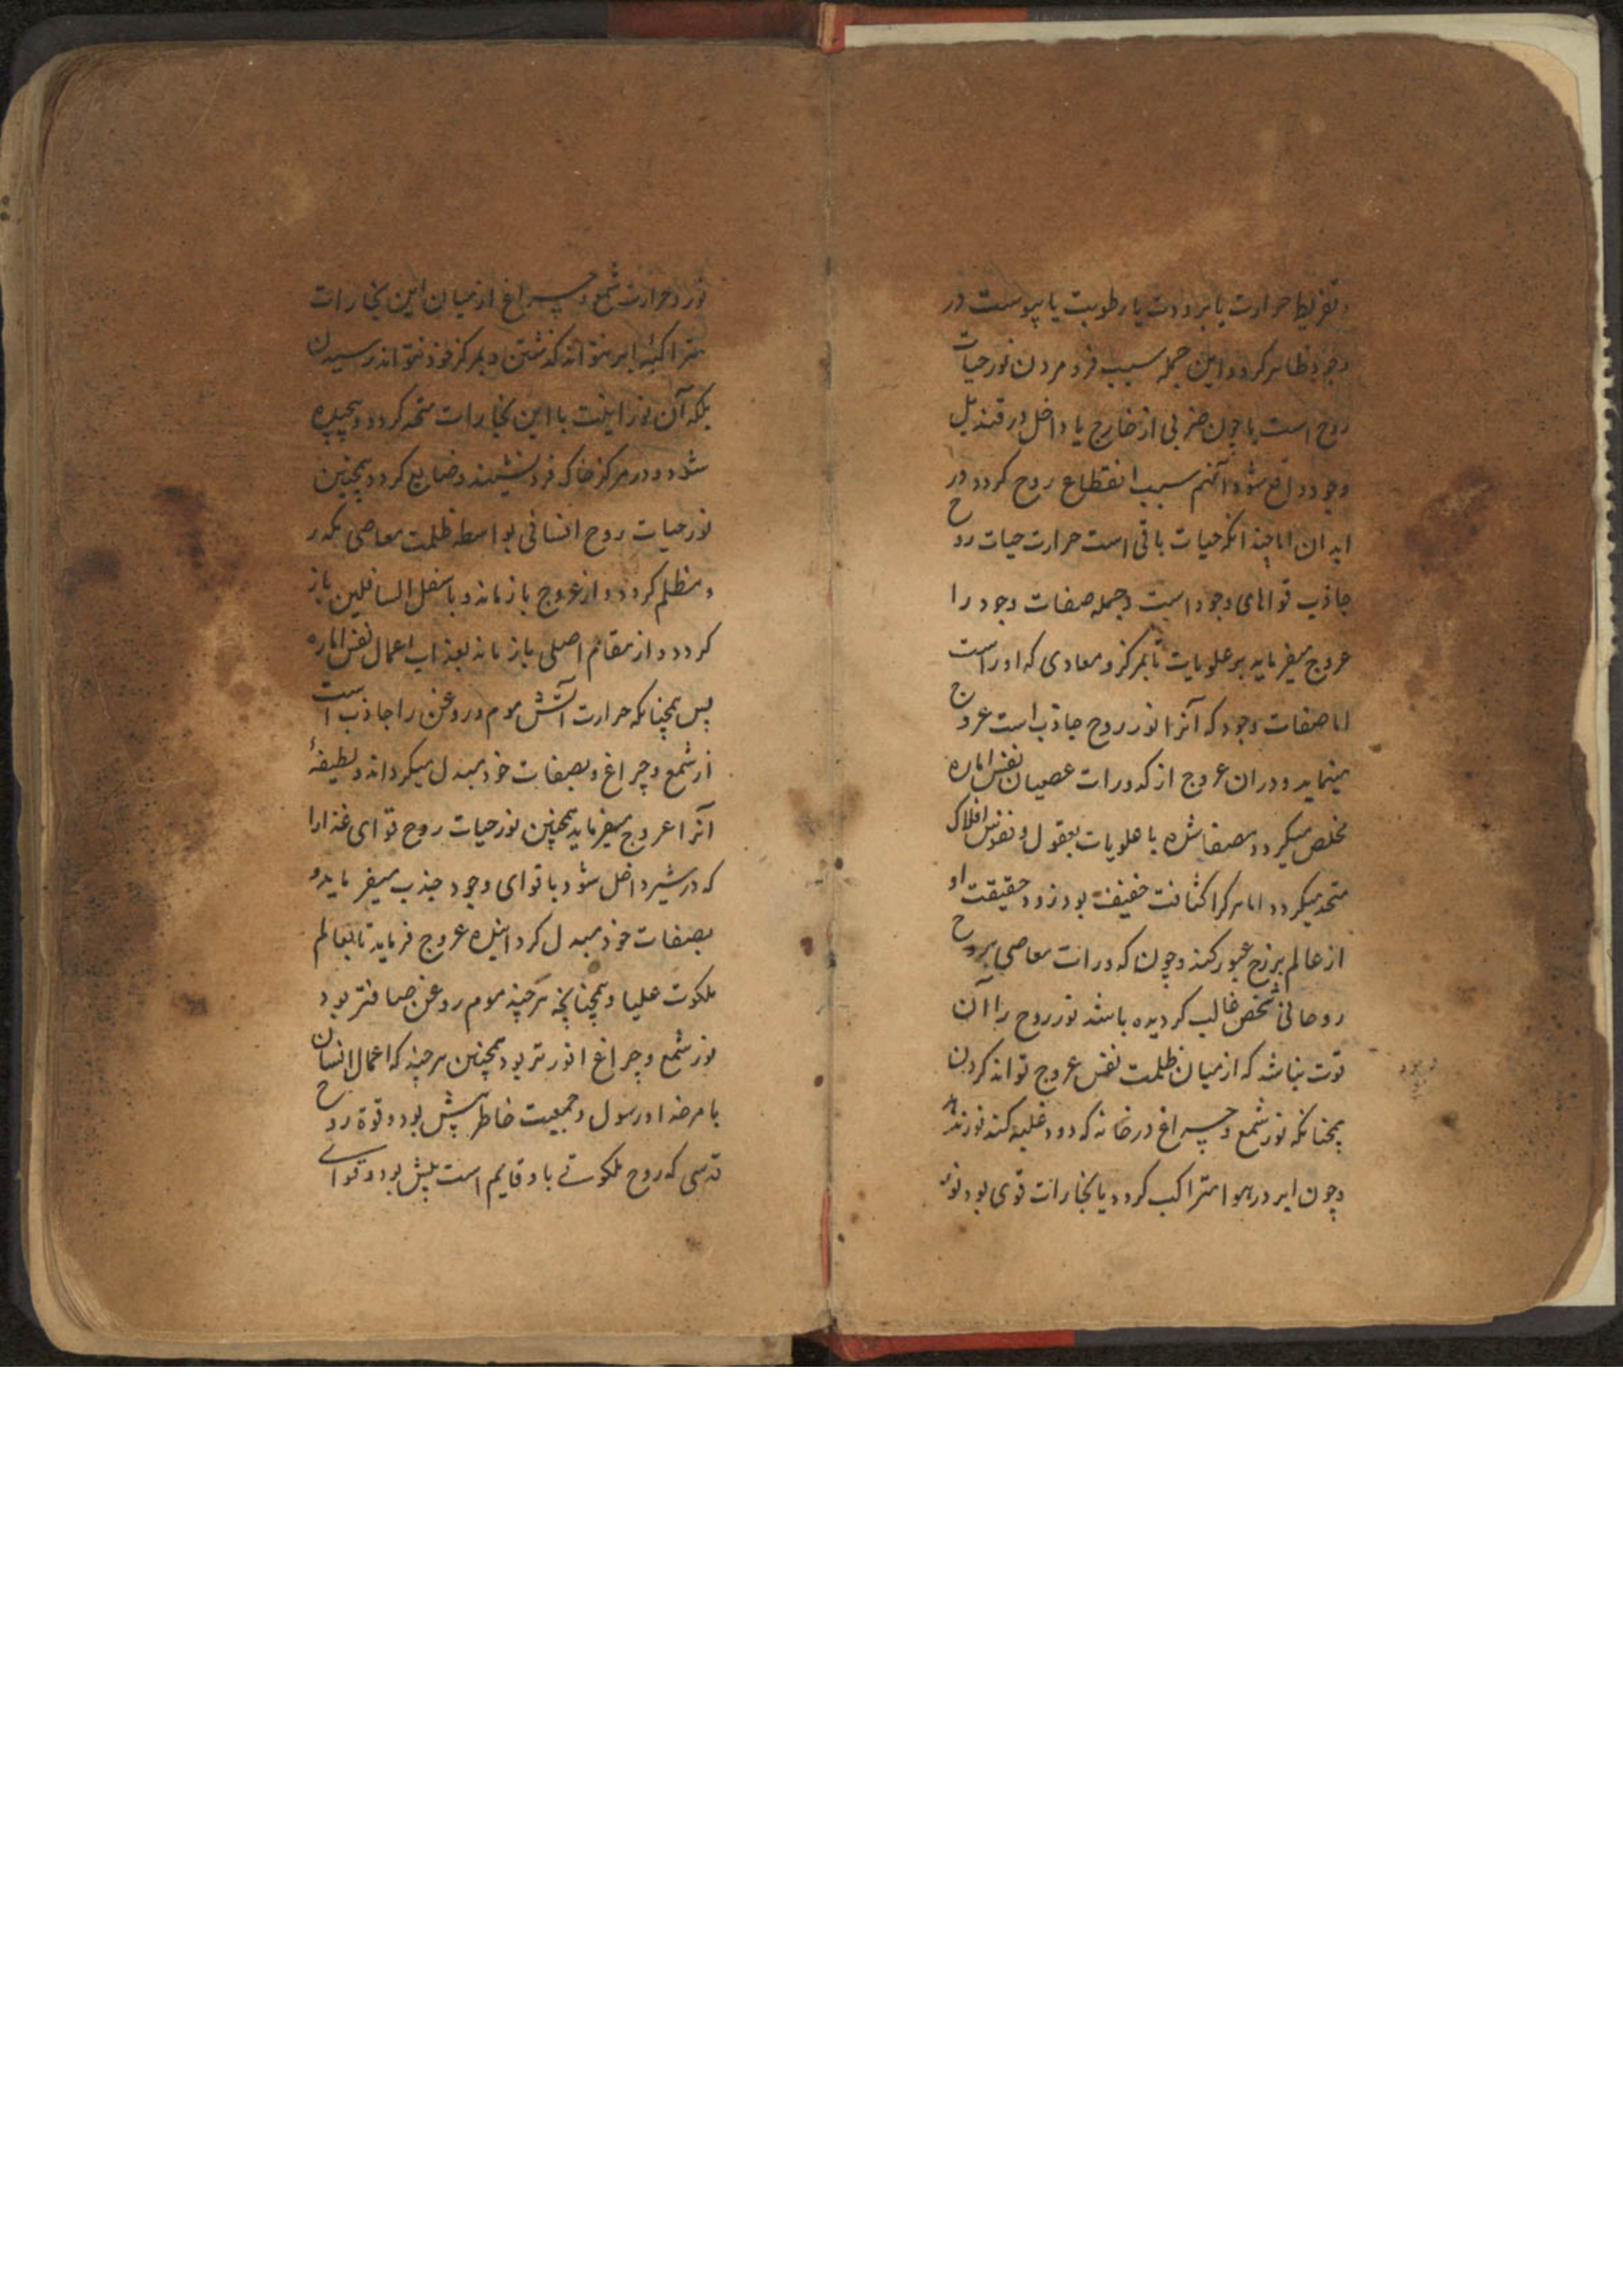 و تفریط حرارت یا برودت یا رطوبت یا یبوست در
وجود ظاهر کردد و این جمله سبب فرو مردن نور حیات
روح است یا چون ضربی از خارج یا داخل در قندیل
وجود واقع شود آنهم سبب انقطاع روح کردد در
ابدان اما چندانکه حیات باقی است حرارت حیات روح
جاذب قواهای وجود است و جمله صفات وجود را
عروج میفرماید بر علویات تا بمرکز و معادی که او راست
اما صفات وجود که آنرا نور روح جاذب است عروج
مینماید و دران عروج از کدورات عصیان نفس اماره
مخلص میکردد و مصفا شده با علویات بعقول و نفوس افلاک
متحد میکردد اما هر کرا کثافت خفیفت بود زود حقیقت او
از عالم برزخ عبور کند و چون کدورات معاصی بر روح
روحانی شخص غالب کردیده باشد نور روح را آن
قوت نباشد که از میان ظلمت نفس عروج تواند کردن
همچنانکه نور شمع و چراغ در خانه که دود غلبه کند نور ندهد
و چون ابر در هوا متراکب کردد یا بخارات قوی بود نور
نور و حرارت شمع و چراغ از میان این بخارات
متراکبه ابر نتواند کذشتن و بمرکز خود نتواند رسیدن
بلکه آن نور ... با این بخارات متحد کردد و پیچیده
شود و در مرکز خاک فرو نشیند و ضایع کردد همچنین
نور حیات روح انسانی بواسطه ظلمت معاصی مکدر
و مظلم کردد و از عروج باز ماند و باسفل السافلین باز
کردد و از مقام اصلی باز ماند بعذاب اعمال نفس اماره
پس همچنانکه حرارت آتش موم و روغن را جاذب است
از شمع و چراغ و بصفات خود مبدل میکرداند و لطیفهٔ
آنرا عروج میفرماید همچنین نور حیات روح قوای غذا را
که در شیر داخل شود با قوای وجود جذب میفرماید و
بصفات خود مبدل کردانیده عروج فرماید تا بعالم
ملکوت علیا و همچنانچه هر چند موم روغن صافتر بود
نور شمع و چراغ انورتر بود همچنین هر چند که اعمال انسان
با مر خدا و رسول و جمعیت خاطر بیش بود و قوة روح
قدسی که روح ملکوتی باو قایم است بیش بود و قوای